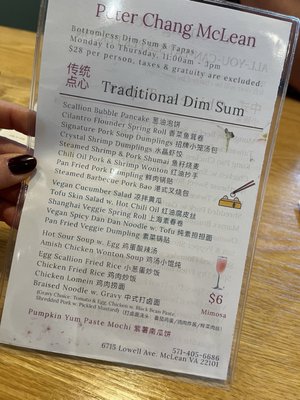 Peter Chang McLean
Bottomless Dim Sum & Tapas
Monday to Thursday, 11:00am - 3pm
$28 per person, taxes & gratuity are excluded.
传统
点心
Traditional Dim Sum
Scallion Bubble Pancake 葱油泡饼
Cilantro Flounder Spring Roll 香菜鱼茸卷
Signature Pork Soup Dumplings 招牌小笼汤包
Crystal Shrimp Dumplings 水晶虾饺
Steamed Shrimp & Pork Shumai 鱼籽烧麦
Chili Oil Pork & Shrimp Wonton 红油抄手
Pan Fried Pork Dumpling 鲜肉锅贴
Steamed Barbecue Pork Bao 港式叉烧包
Vegan Cucumber Salad 凉拌黄瓜
Tofu Skin Salad w. Hot Chili Oil 红油腐皮丝
Shanghai Veggie Spring Roll 上海素春卷
Vegan Spicy Dan Dan Noodle w. Tofu 纯素担担面
Pan Fried Veggie Dumpling 素菜锅贴
Hot Sour Soup w. Egg 鸡蛋酸辣汤
Amish Chicken Wonton Soup 鸡汤小馄饨
Egg Scallion Fried Rice 小葱蛋炒饭
Chicken Fried Rice 鸡肉炒饭
Chicken Lomein 鸡肉捞面
Braised Noodle w. Gravy 中式打卤面
(Gravy Choice: Tomato & Egg, Chicken w. Black Bean Paste,
Shredded Pork w. Pickled Mustard)
$6
Mimosa
Pumpkin Yum Paste Mochi 紫薯南瓜饼
571-405-6686
6715 Lowell Ave. McLean VA 22101